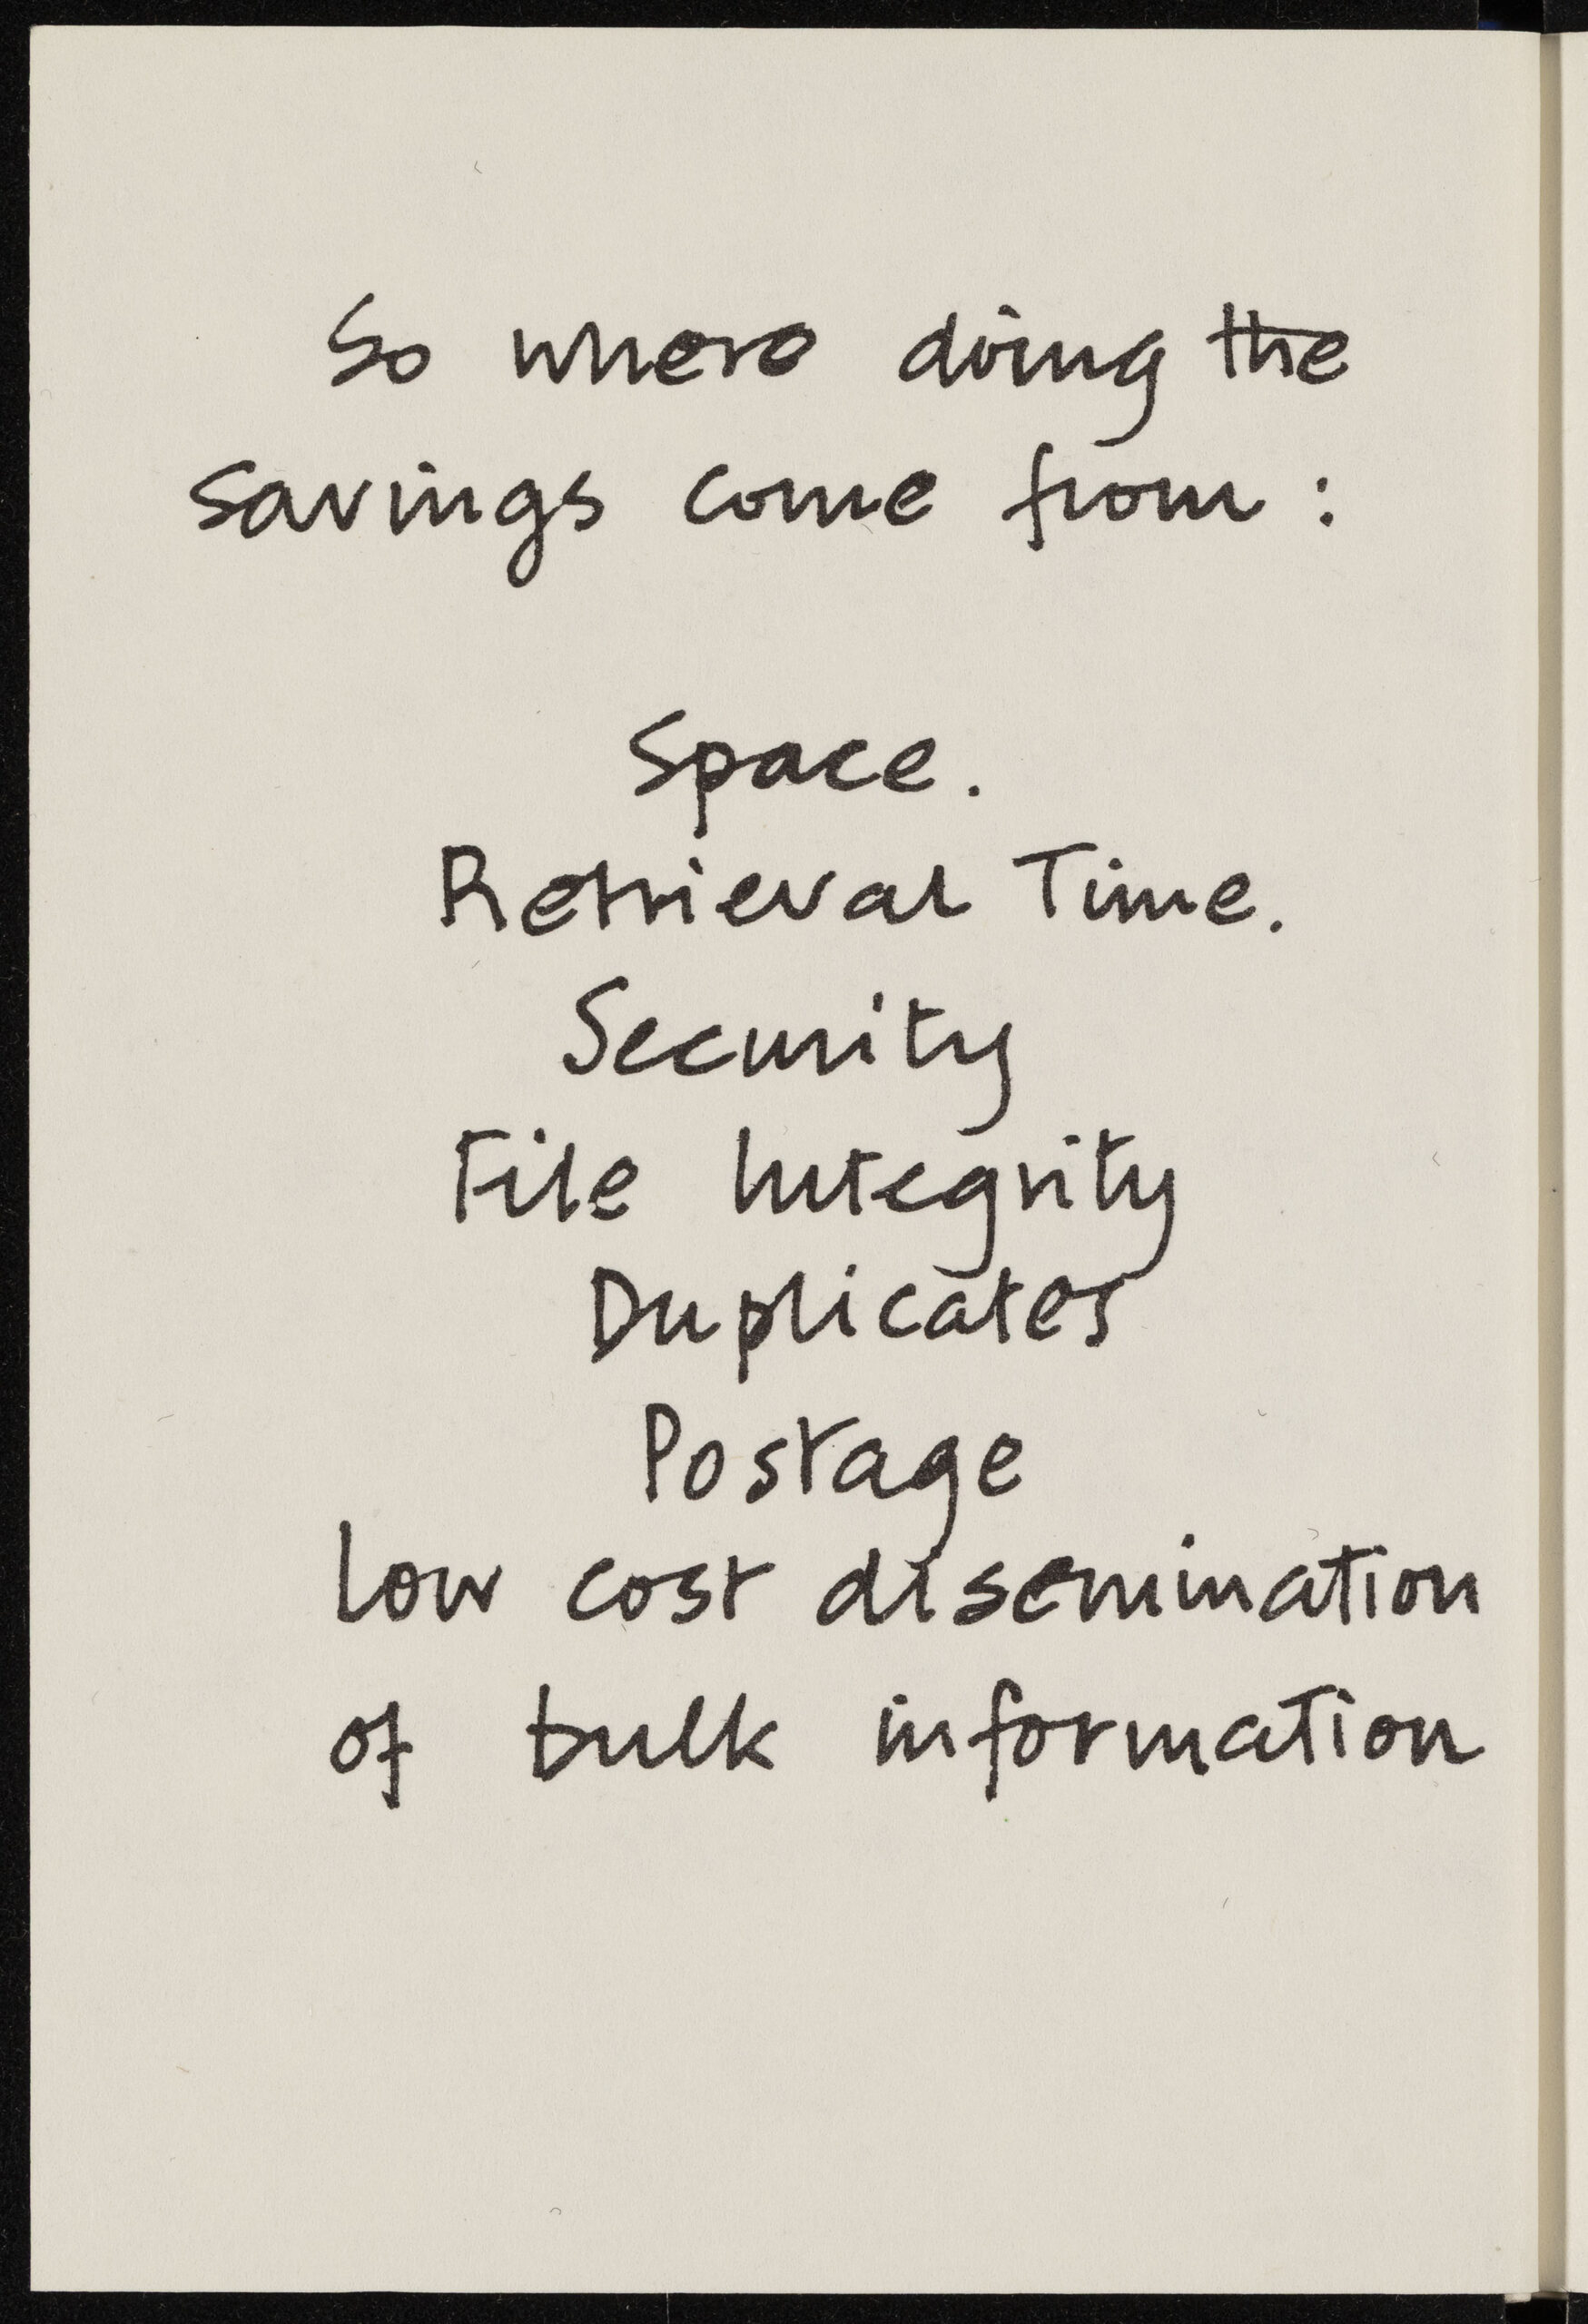 So where doing the
savings come from :
Space.
Retrieval Time.
Security
File Integrity
Duplicates
Postage
low cost disemination
of bulk information